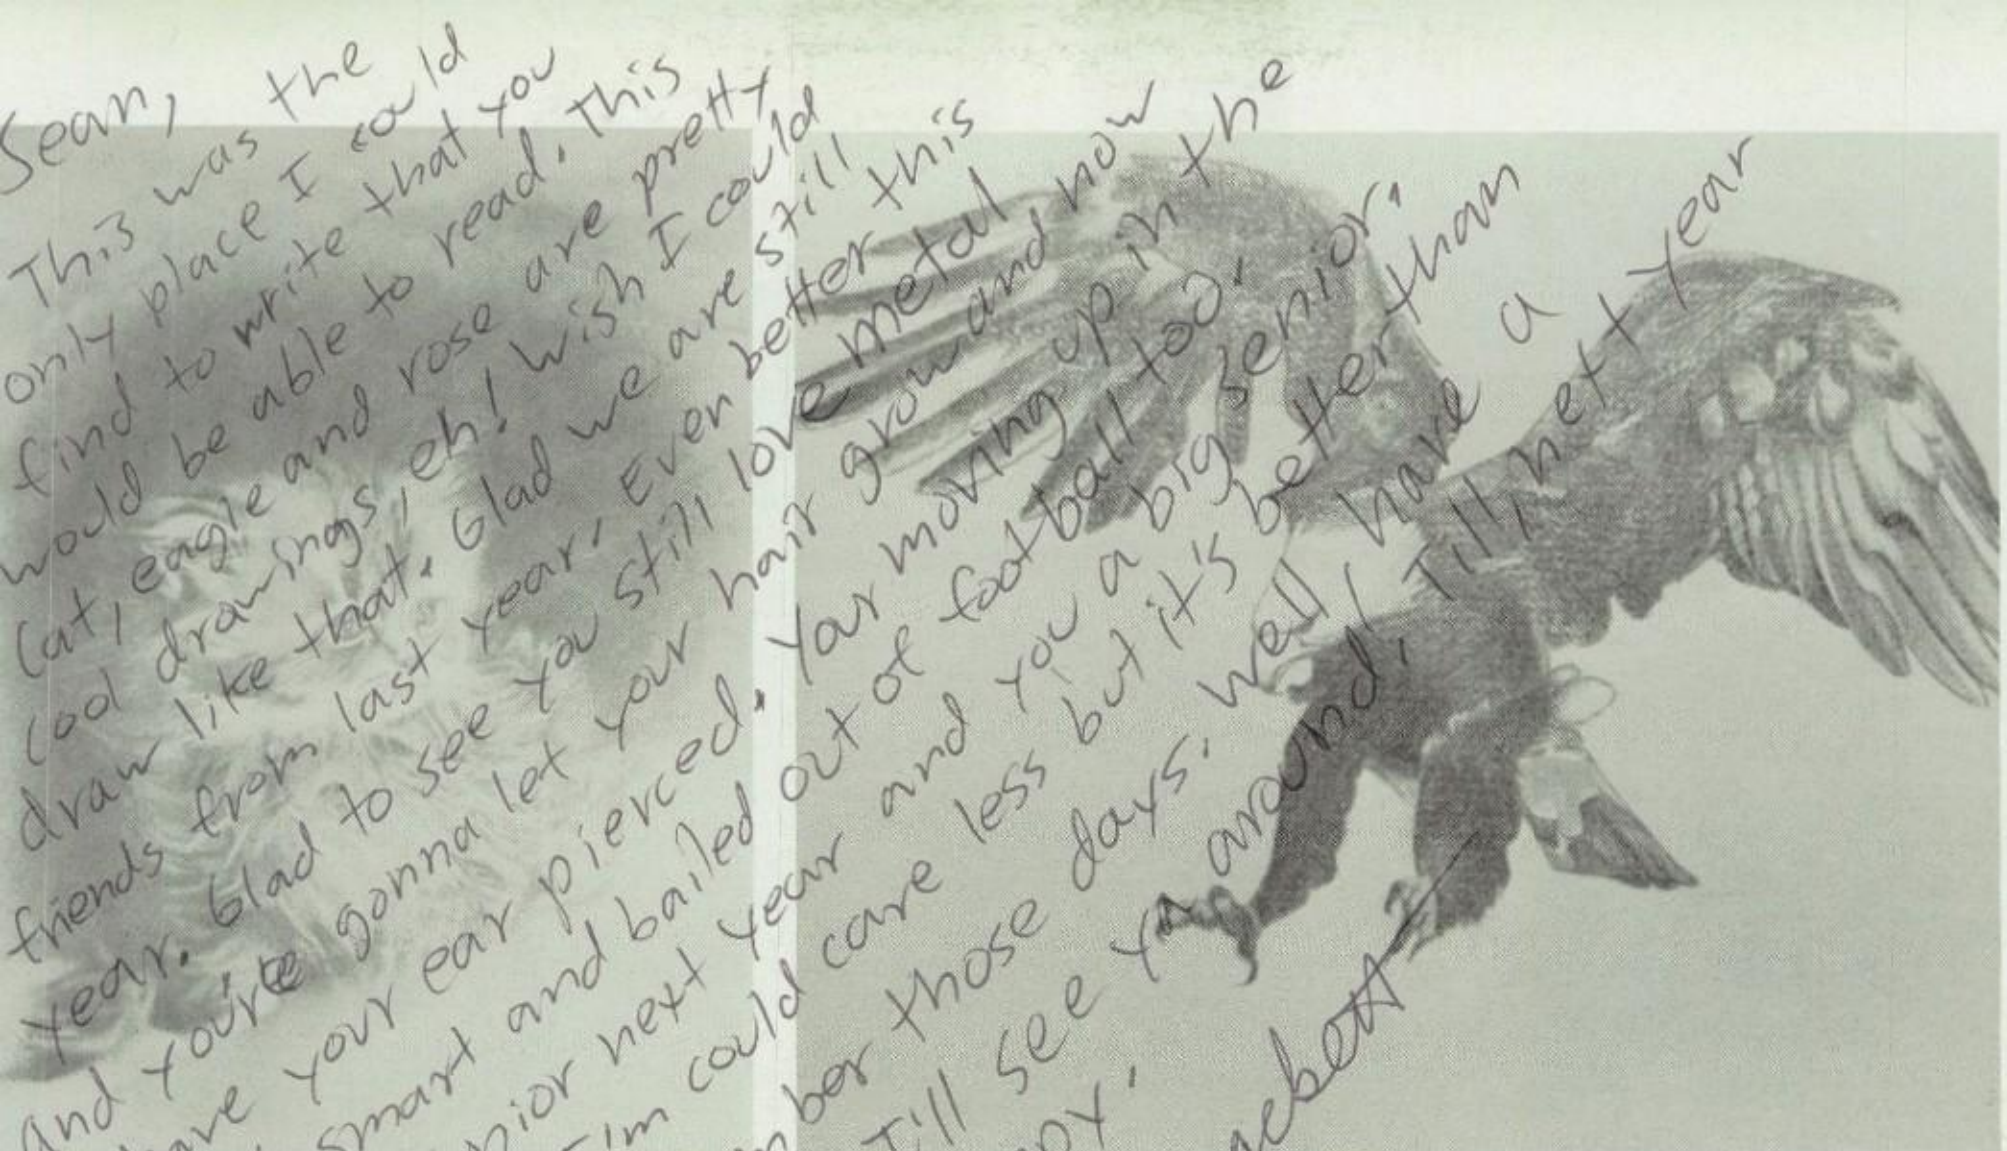 Sean,
This was the
only place I could
find to write that you
would be able to read. This
cat, eagle and rose are pretty
cool drawings, eh! Wish I could
draw like that. Glad we are still
friends from last year. Even better this
year. Glad to see you still love metal
and you're gonna let your hair grow and now
have your ear pierced. Your moving up in the
smart and bailed out of football too.
next year and you a big senior.
could care less but it's better than
those days. Well, have a
Till see ya around. Till next year